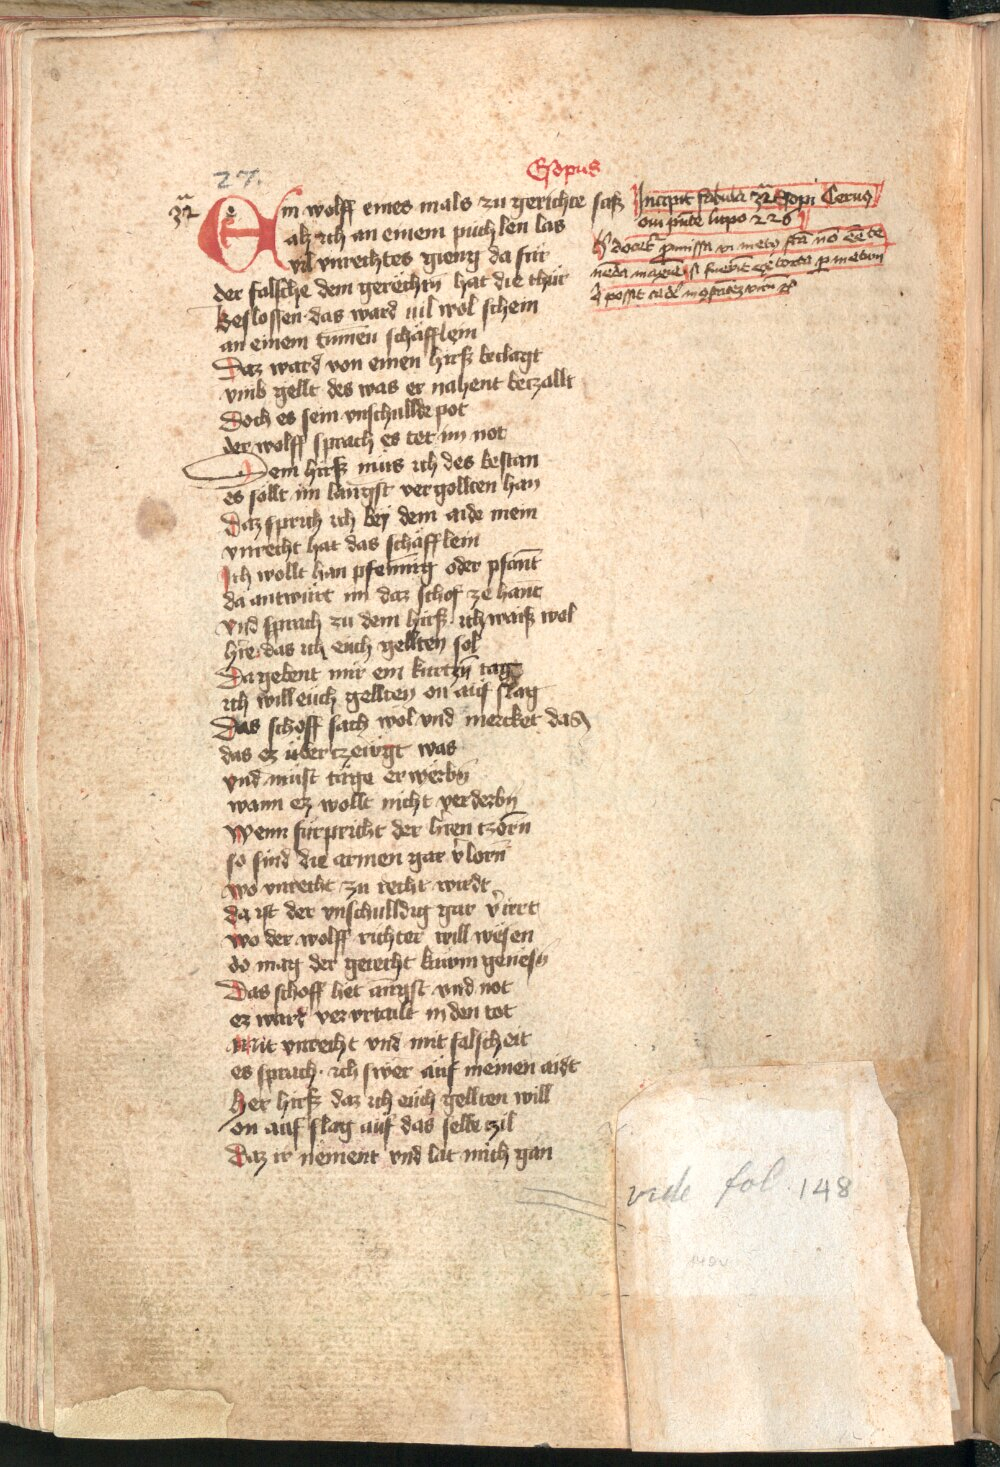 Esopus
27.
32
Ein wolff eines mals zu gerichte saß
alz ich an einem puchlen las
vil vnrechtes gieng da für
der falsche dem gerechtn̄ hat die thür
Beslossen das ward uil wol schein
an einem tum̄en schäfflein
Daz ward von einen hirß beclagt
vmb gellt des was er nahent betzallt
Doch es sein vnschullde pot
der wolff sprach es tet im not
Dem hirß mus ich des bestan
es sollt im langst vergollten han
Daz sprich ich bey dem aide mein
vnrecht hat das schäfflein
Ich wollt han pfennīg oder pfant
da antwürt im daz schof ze hant
vnd sprach zu dem hirß ich waiß wol
h're das ich euch gellten sol
Da gebent mir ein kurtzn̄ tag
ich will euch gellten on auf slag
Das schoff sach wol vnd mercket das
das ez über tzewgt was
vnd müst täge erwerbn̄
wann ez wollt nicht verderbn̄
Wenn fürpricht der h'ren tzorn
so sind die armen gar v'lorn
wo vnrecht zu recht wirdt
da ist der vnschulldig gar v'irrt
wo der wolff richter will wesen
do mag der gerecht kawm genesn̄
Das schoff het angst vnd not
ez ward ver vrtailt in den tot
Mit vnrecht vnd mit falscheit
es sprach ich swer auf meinen aidt
Her hirß daz ich euch gellten will
on auf slag auf das selbe tzil
Daz ir nement vnd lat mich gan
Incipit fabula 32 Esopi Ceruo
oui pn̄te lupo 226
vide fol. 148